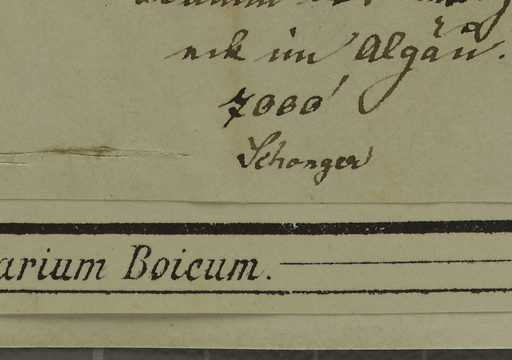 eck im Algäu.
7000'
Schonger
arium Boicum.